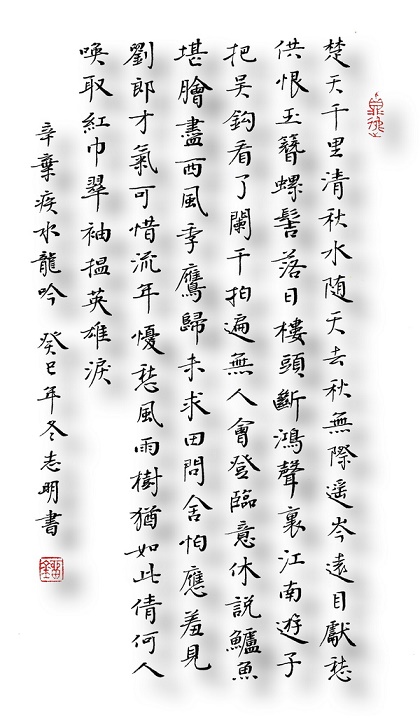 楚天千里清秋水随天去秋無際遥岑遠目獻愁
供恨玉簪螺髻落日樓頭斷鴻聲裏江南遊子
把吴鈎看了闌干拍遍無人會登臨意休説鱸魚
堪膾盡西風季鷹歸未求田問舍怕應羞見
劉郎才氣可惜流年憂愁風雨樹猶如此倩何人
唤取紅巾翠袖揾英雄淚
辛棄疾水龍吟 癸巳年冬志明書